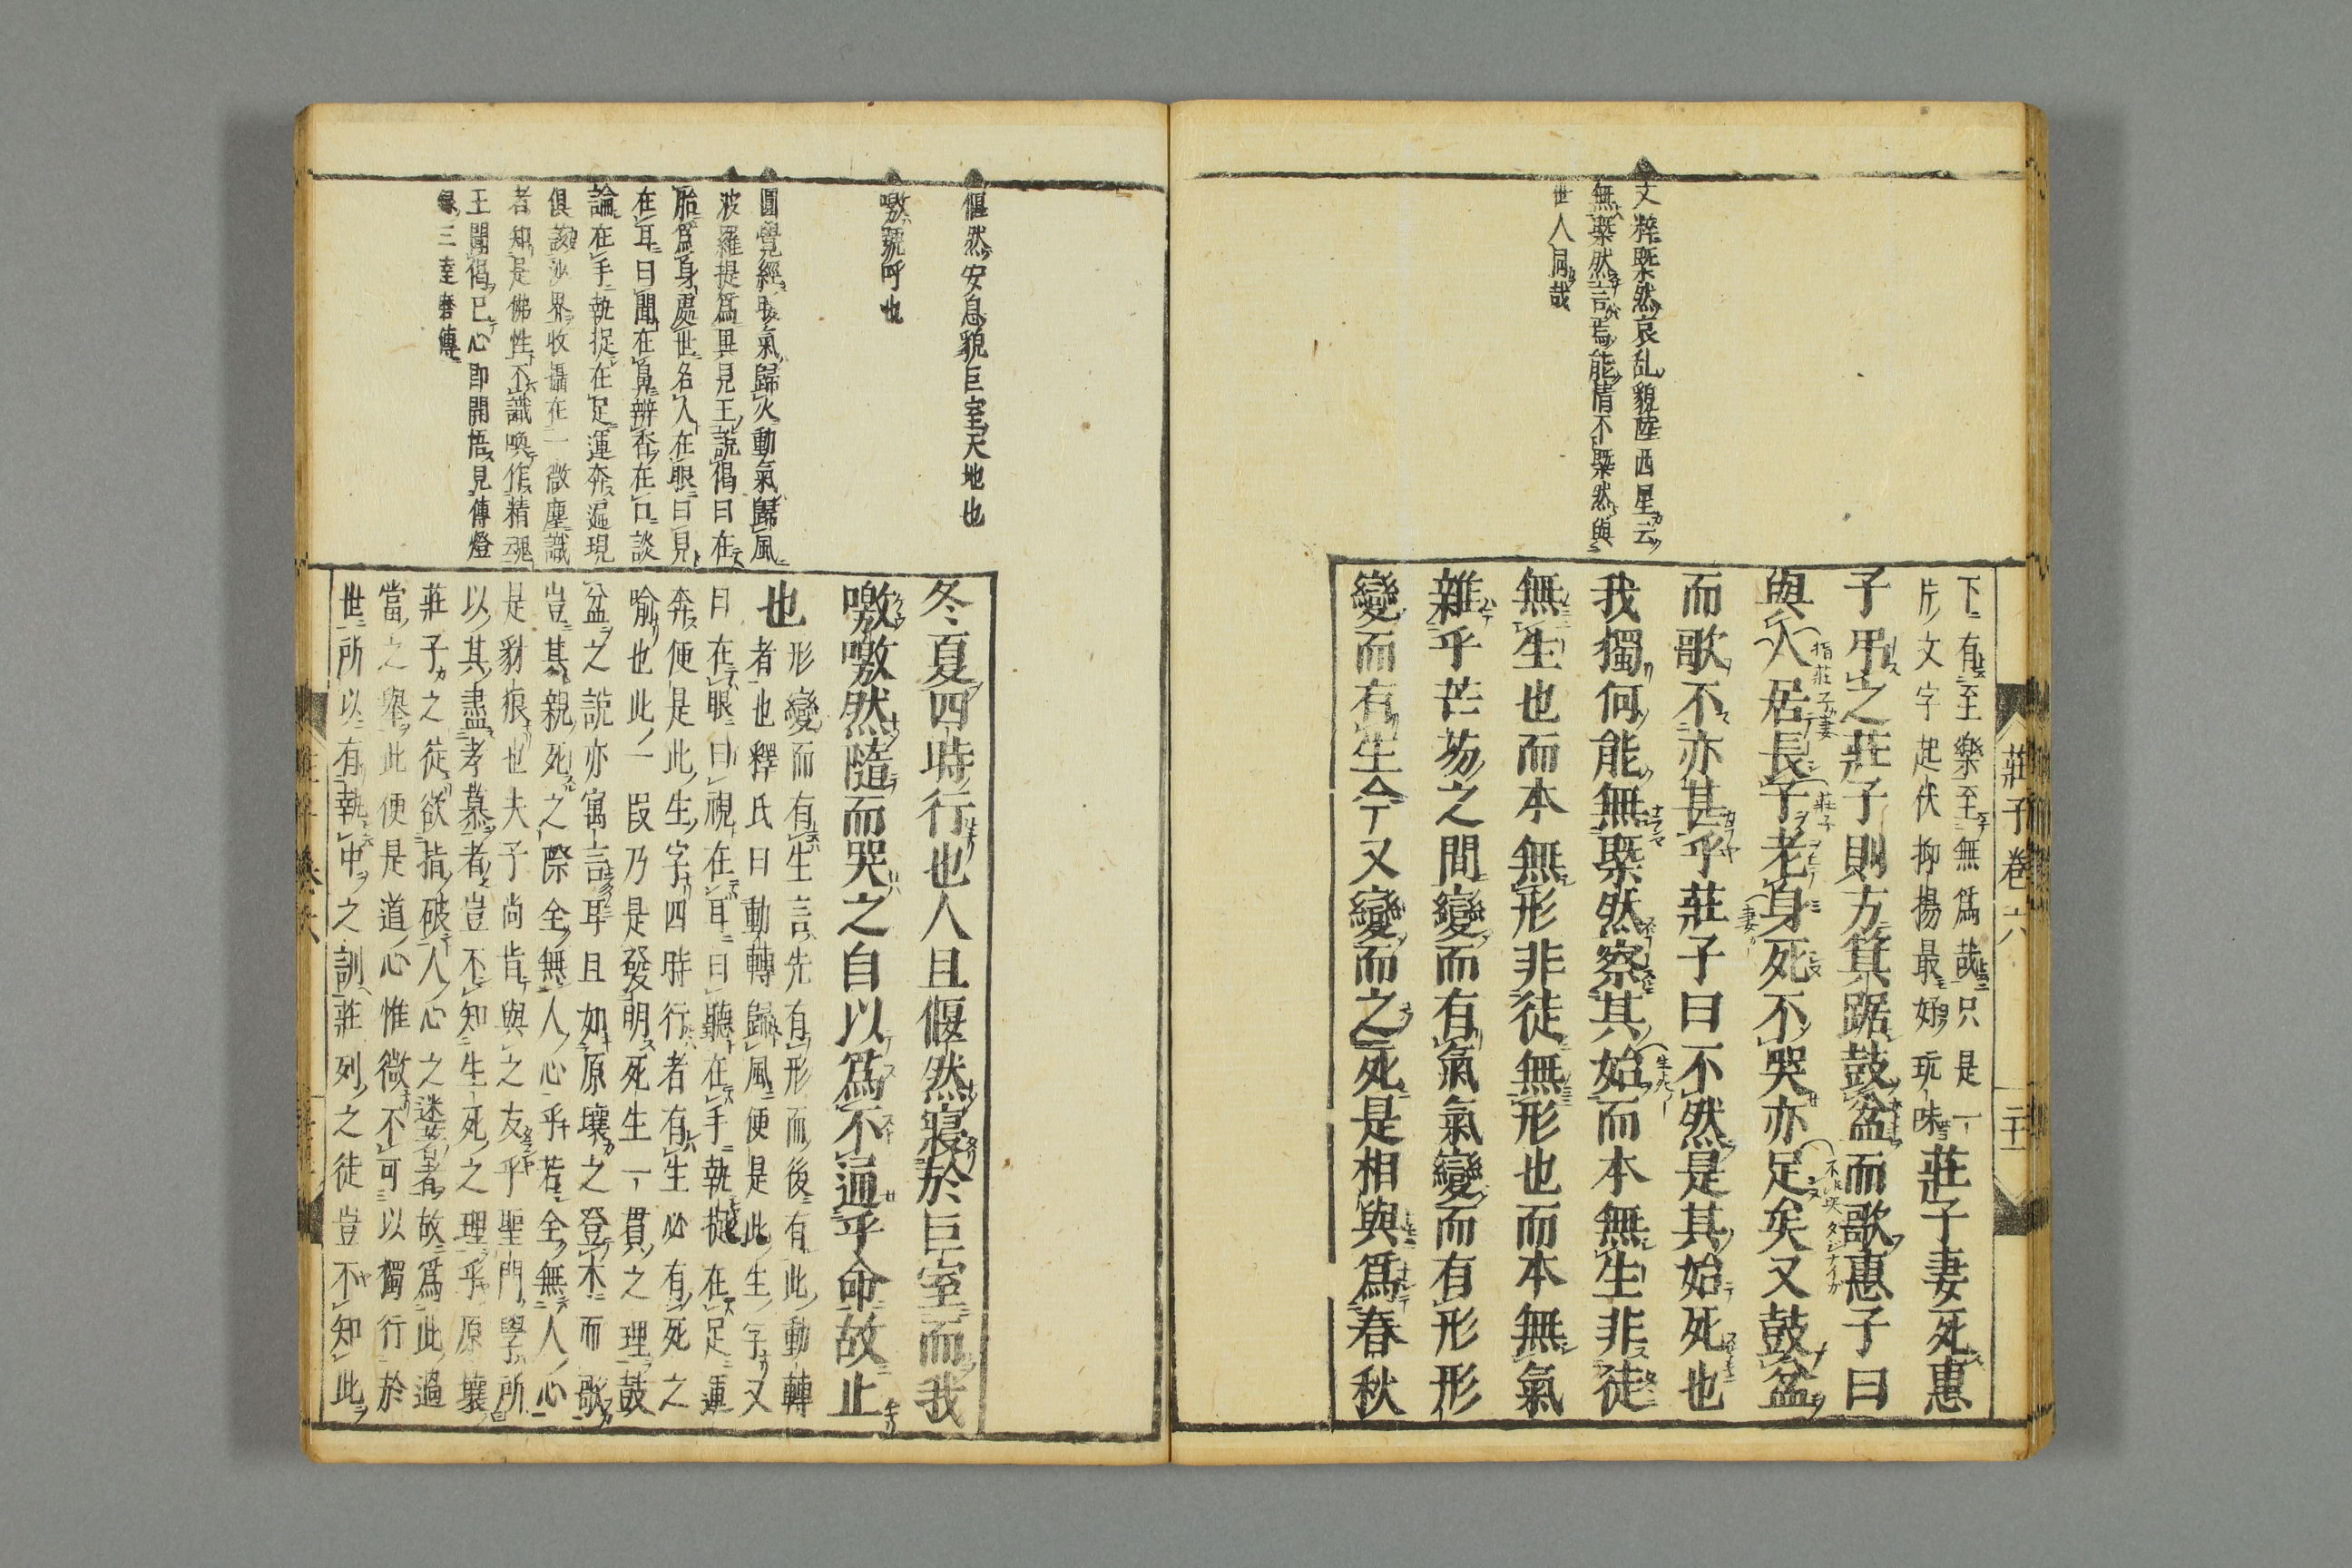 莊子卷六
二十一
文粹槩然哀乱貌陸西星云
無槩然言焉能情不槩然與
世人同哉
下有至樂至無爲哉只是一
片文字起伏抑揚最好玩味莊子妻死惠
子弔之莊子則方箕踞鼓盆而歌惠子曰
與人居長子老身死不哭亦足矣又鼓盆
指莊子妻
莊子
妻
而歌不亦甚乎莊子曰不然是其始死也
我獨何能無槩然察其始而本無生非徒
無生也而本無形非徒無形也而本無氣
雜乎芒芴之間變而有氣氣變而有形形
變而有生今又變而之死是相與爲春秋
偃然安息貌巨室天地也
噭號呼也
圓覺經暖氣歸火動氣歸風
波羅提爲異見王說偈曰在
胎爲身處世名人在眼曰見
在耳曰聞在鼻辨香在口談
論在手執捉在足運奔遍現
俱該沙界收攝在一微塵識
者知是佛性不識喚作精魂
王聞偈已心即開悟見傳燈
録三達磨傳
冬夏四時行也人且偃然寢於巨室而我
噭噭然隨而哭之自以爲不通乎命故止
也形變而有生言先有形而後有此動轉
者也釋氏曰動轉歸風便是此生字又
曰在眼曰視在耳曰聽在手執捉在足運
奔便是此生字四時行者有生必有死之
喻也此一段乃是發明死生一貫之理鼓
盆之說亦寓言耳且如原壤之登木而歌
豈其親死之際全無人心乎若全無人心
是豺狼也夫子尚肯與之友乎聖門學所
以其盡孝慕者豈不知生死之理乎原壤
莊子之徒欲指破人心之迷著者故爲此過
當之舉此便是道心惟微不可以獨行於
世所以有執中之訓莊列之徒豈不知此